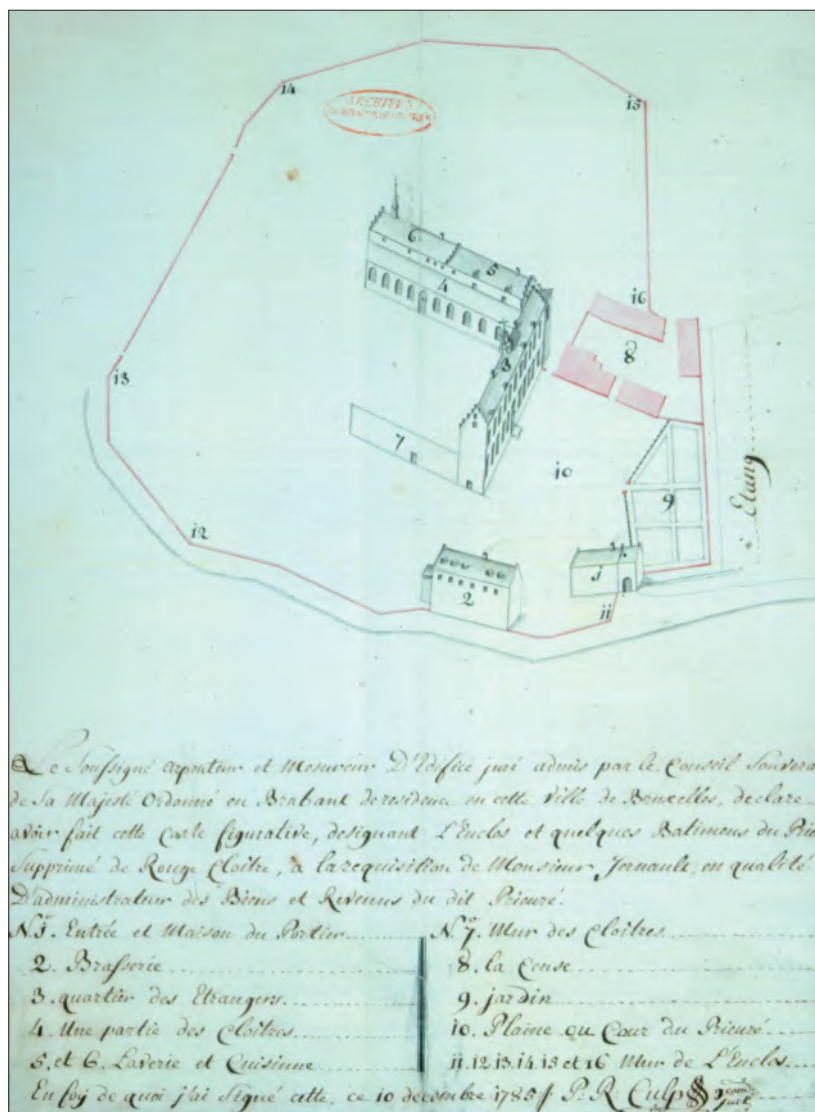 14
15
ARCHIVES
6
5
4
16
3
8
13
7
10
9
Etang
12
2
1
11
Le Soussigné Arpenteur et Mesureur D'Edifice juré admis par le Conseil Souvera
de Sa Majesté Ordonné en Brabant de residence en cette Ville de Bruxelles, declare
avoir fait cette Carte figurative, designant L'Enclos et quelques Batimens du Prie
Supprimé de Rouge Cloitre, a la requisition de Monsieur Jernault, en qualité
D'administrateur des Biens et Revenus du dit Prieuré.
No 1. Entrée et Maison du Portier
2. Brasserie
3. quartier des Etrangers
4. Une partie des Cloitres
5. et 6. Laverie et Cuisinne
No 7. Mur des Cloitres
8. la Cense
9. jardin
10. Plaine ou Cour du Prieuré
11. 12. 13. 14. 15 et 16 Mur de L'Enclos
En foy de quoi j'ai Signé cette, ce 10 decembre 1785 P. R. Culp